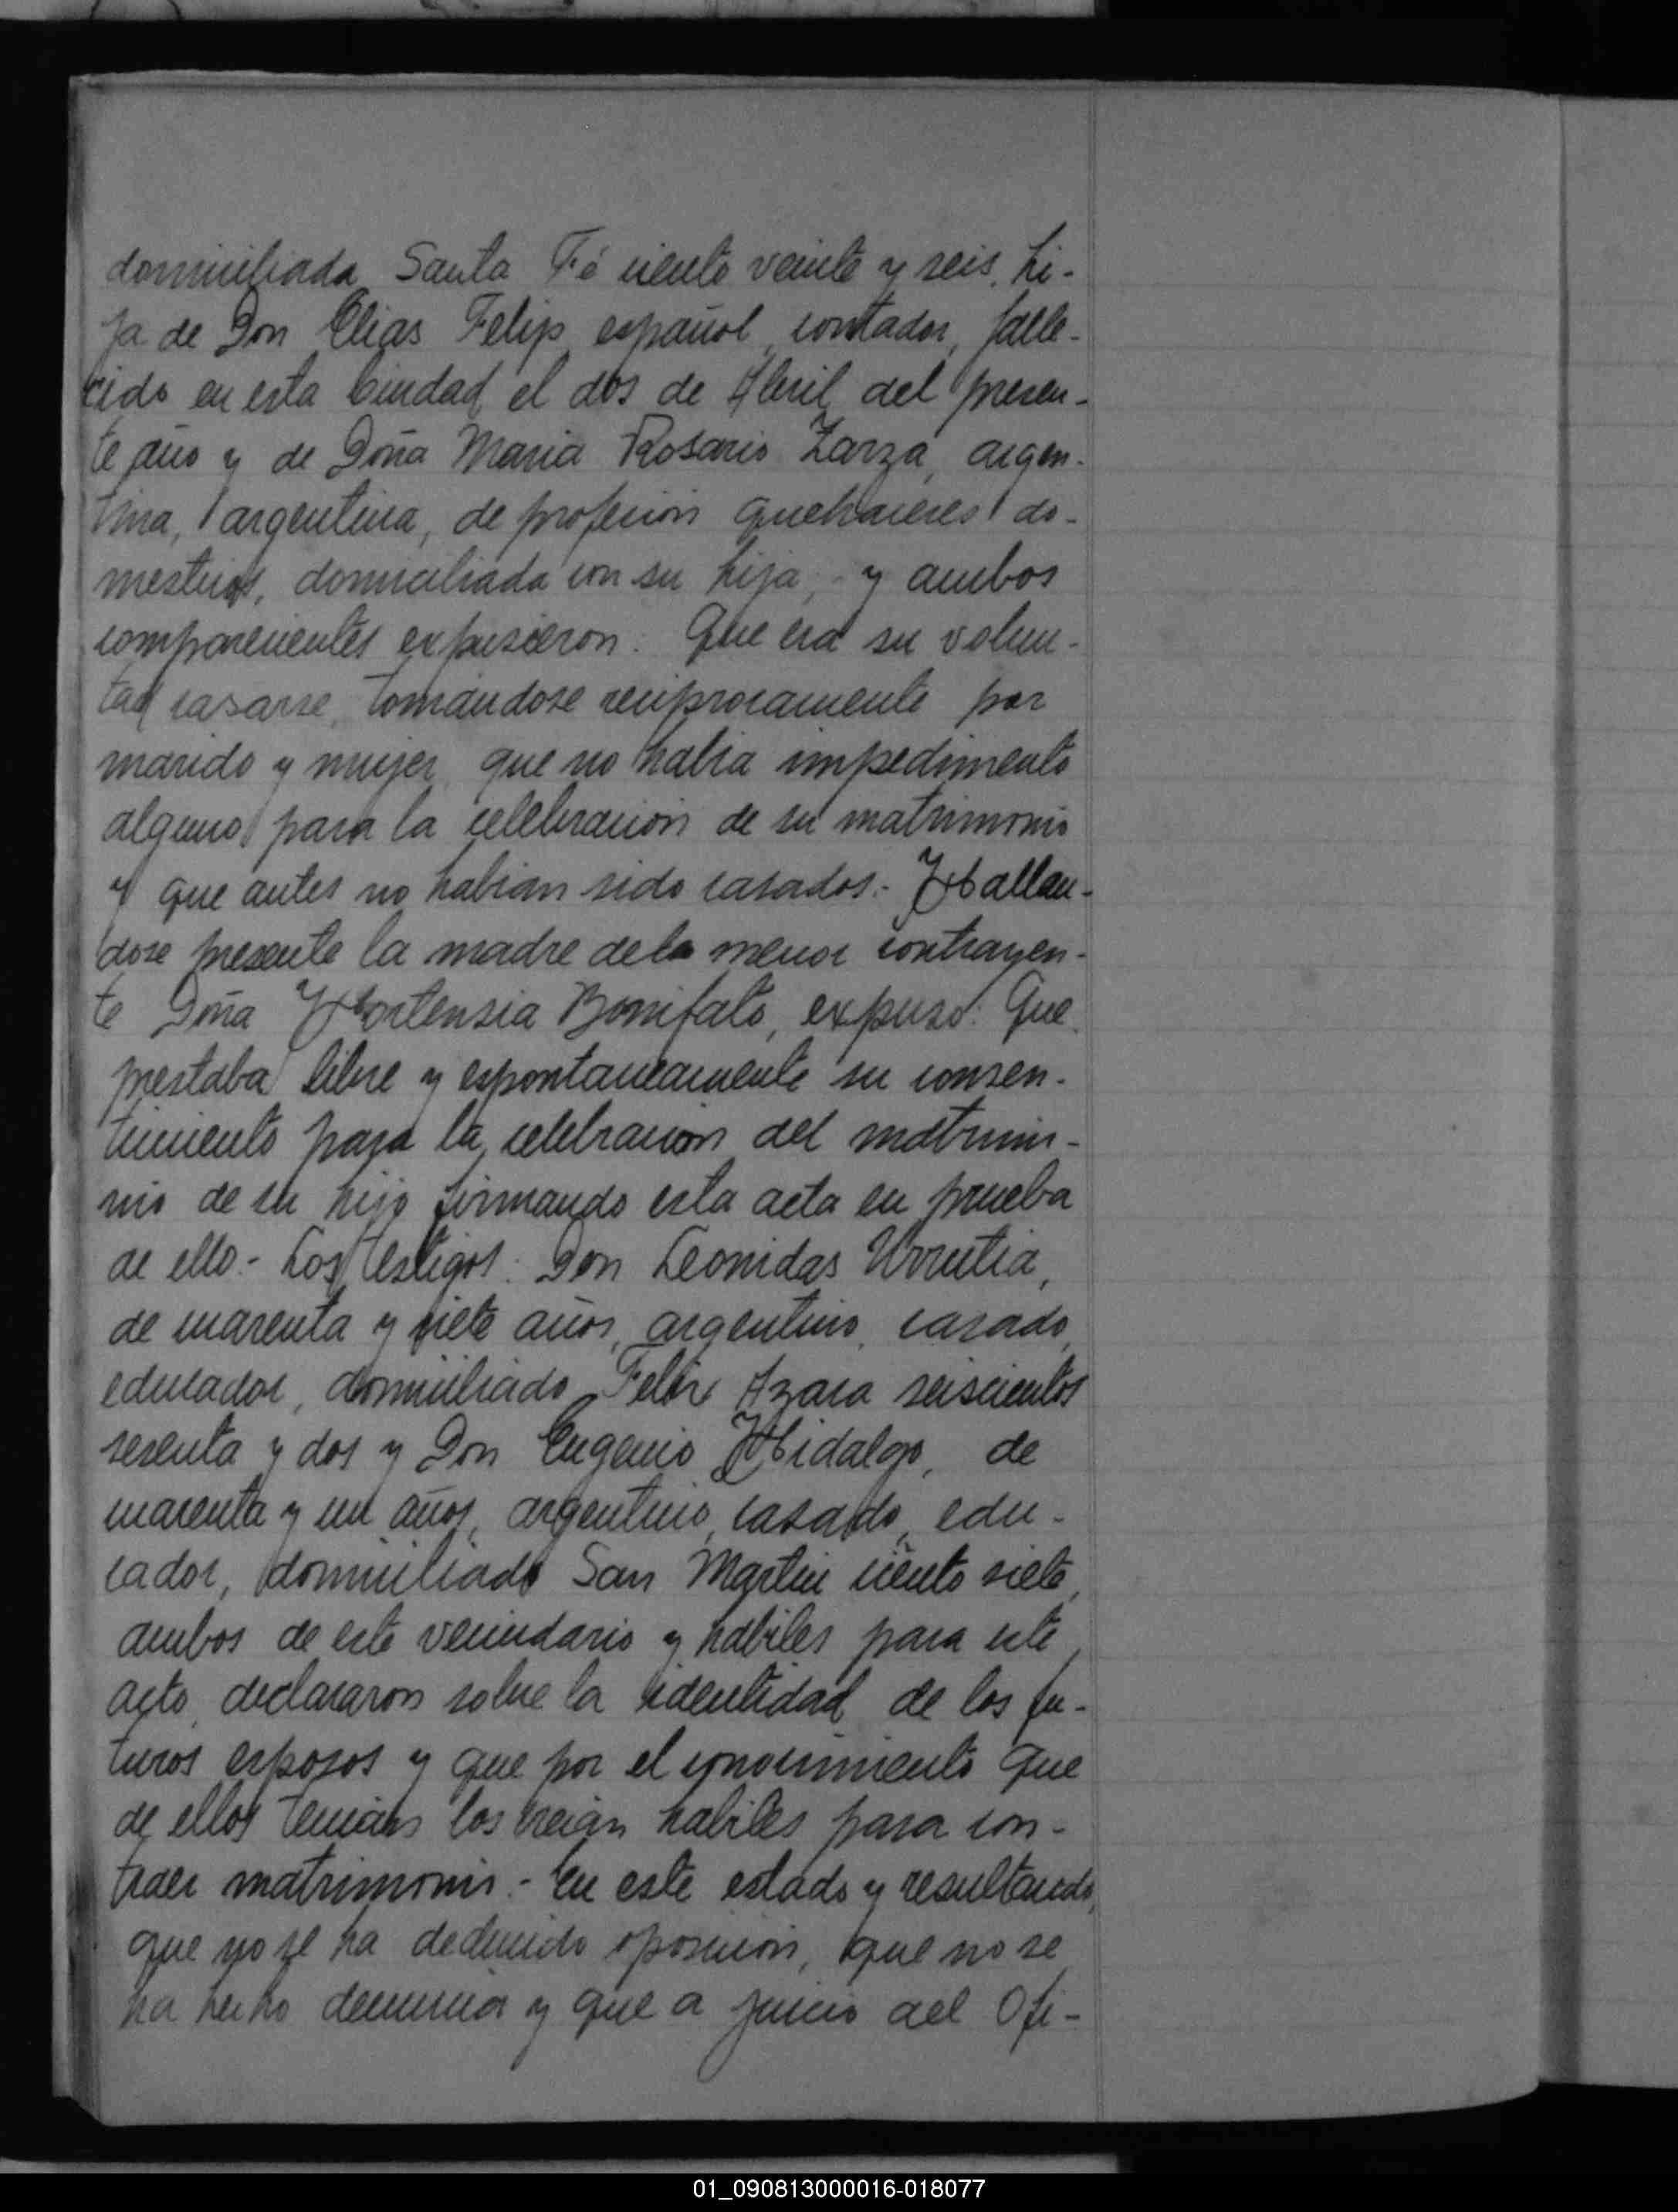 domiciliada Santa Fé ciento veinte y seis, hi-
ja de Don Elias Felip español, contador, falle-
cido en esta Ciudad el dos de Abril del presen-
te año y de Doña Maria Rosario Zarza, argen-
tina, argentina, de profesion quehaceres do-
mesticos, domiciliada con su hija, y ambos
comparecientes expusieron: Que era su volun-
tad casarse, tomandose reciprocamente por
marido y mujer, que no habia impedimento
alguno para la celebracion de su matrimonio
y que antes no habian sido casados.- Hallan-
dose presente la madre de la menor contrayen-
te Doña Hortensia Bonifato, expuso: Que
prestaba libre y espontaneamente su consen-
timiento para la celebracion del matrimo-
nio de su hijo firmando esta acta en prueba
de ello.- Los testigos: Don Leonidas Urrutia,
de cuarenta y siete años, argentino, casado,
educador, domiciliado Felix Azara seiscientos
sesenta y dos y Don Eugenio Hidalgo, de
cuarenta y un años, argentino, casado, edu-
cador, domiciliado San Martin ciento siete,
ambos de este vecindario y habiles para este
acto, declararon sobre la identidad de los fu-
turos esposos y que por el conocimiento que
de ellos tenian los creian habiles para con-
traer matrimonio.- En este estado y resultando
que no se ha deducido oposicion, que no se
ha hecho denuncia y que a juicio del Ofi-
01_090813000016-018077